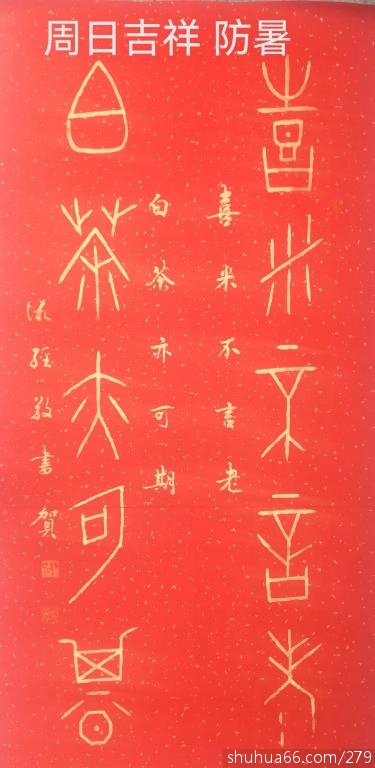 周日吉祥 防暑
喜米不言老
喜米不言老
白茶亦可期
白茶亦可期
敬書賀
shuhua66.com/279